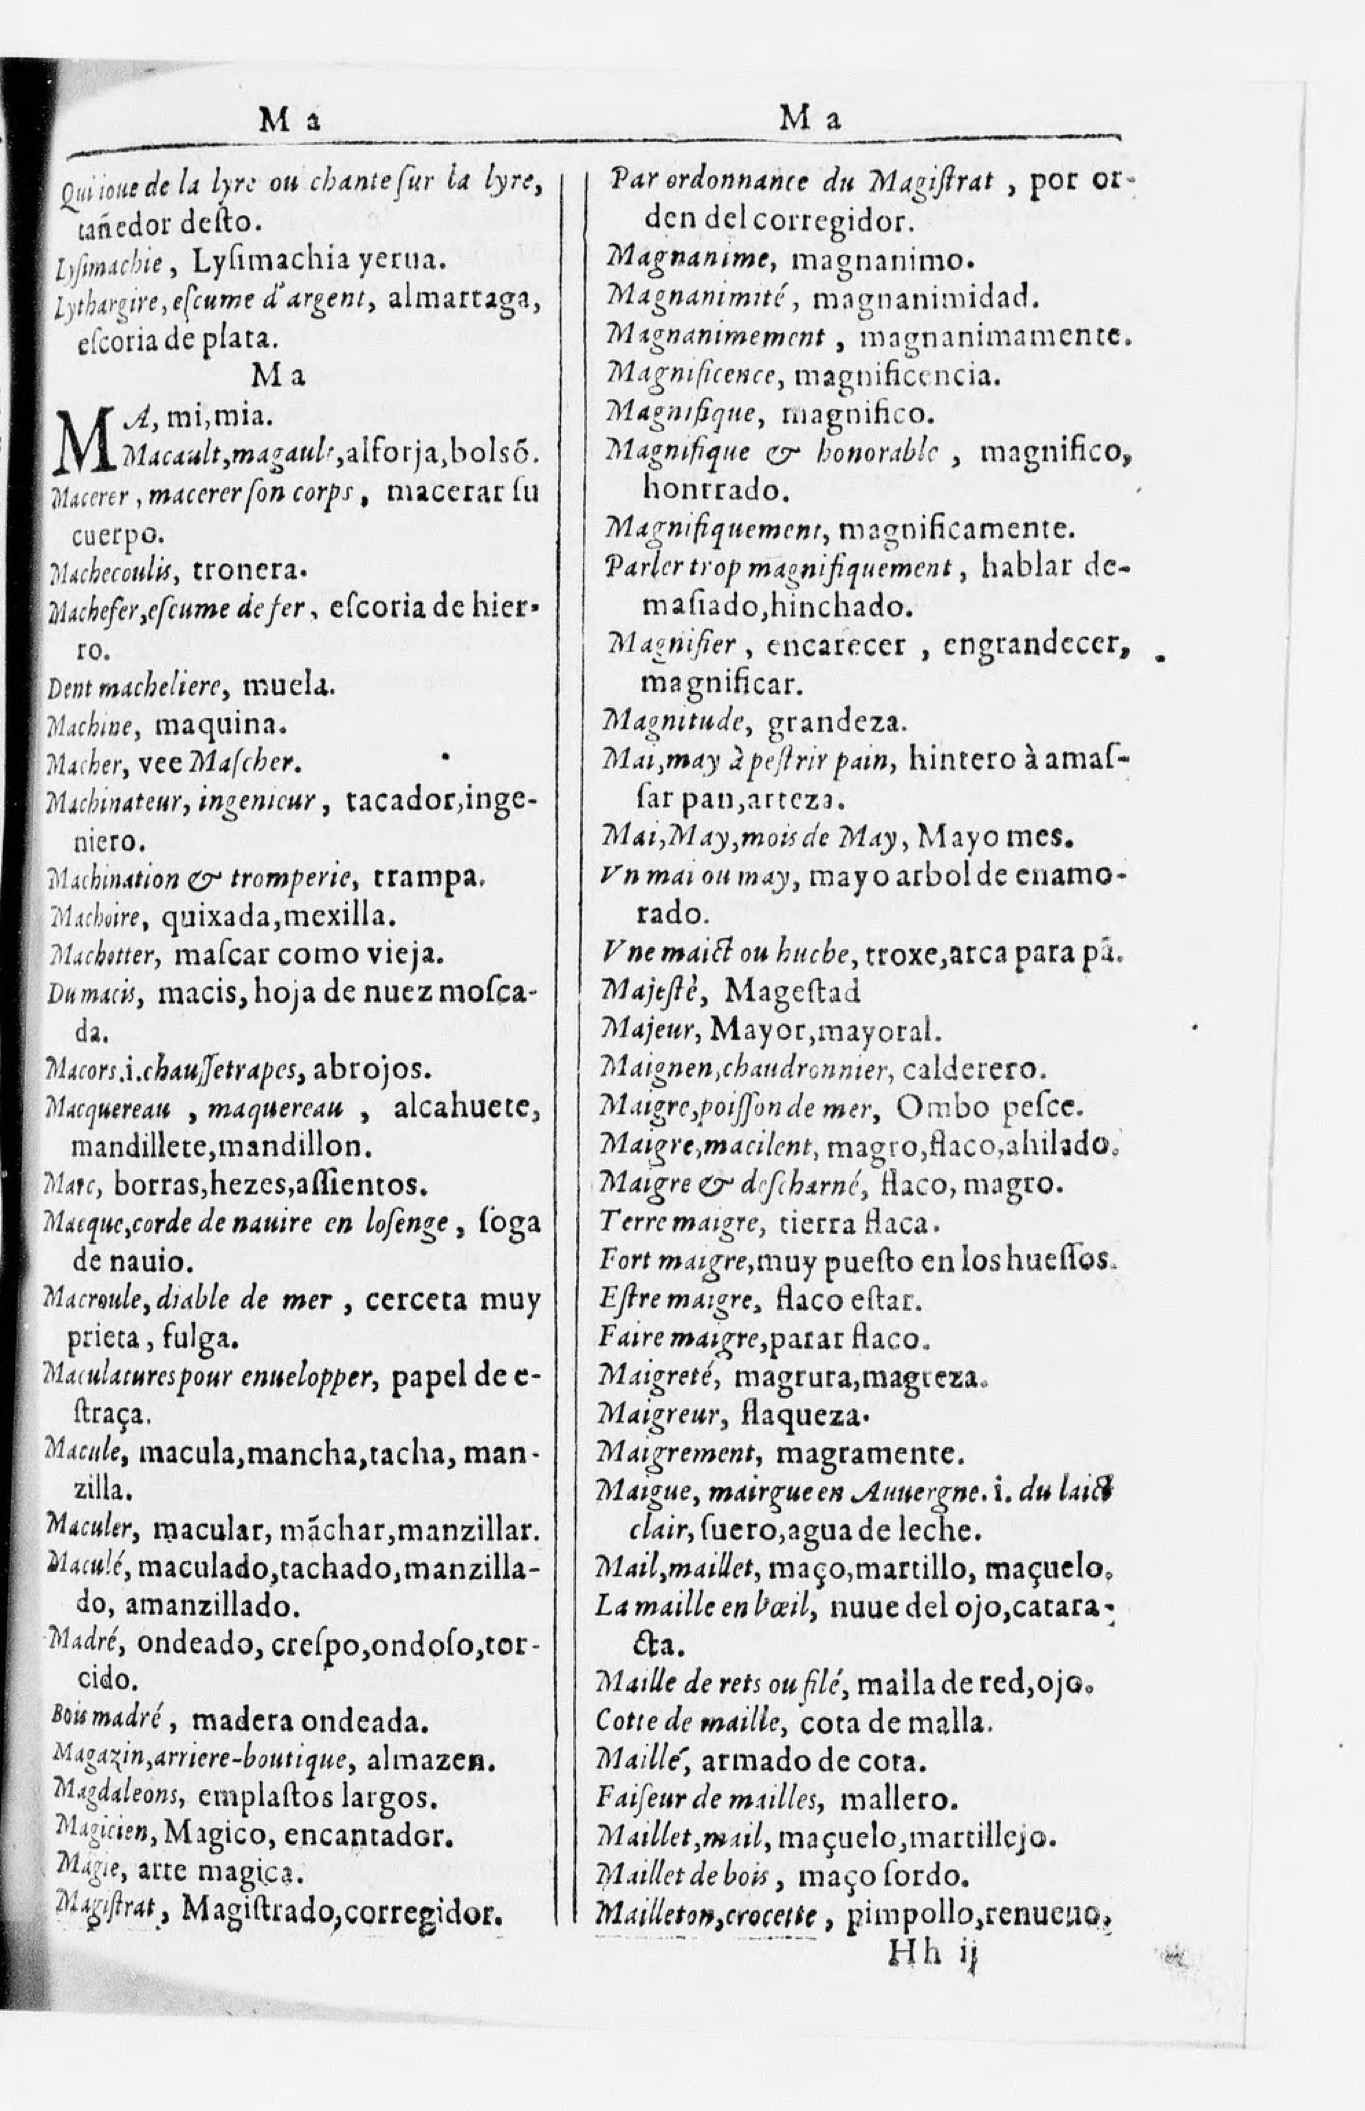 M a
Qui ioue de la lyre ou chante ſur la lyre,
tañedor deſto.
Lyſimachie, Lyſimachia yerua.
Lythargire, eſcume d'argent, almartaga,
eſcoria de plata.
M a
MA, mi, mia.
Macault, magault, alforja, bolsõ.
Macerer, macerer ſon corps, macerar ſu
cuerpo.
Machecoulis, tronera.
Machefer, eſcume de fer, eſcoria de hier-
ro.
Dent macheliere, muela.
Machine, maquina.
Macher, vee Maſcher.
Machinateur, ingenieur, tacador, inge-
niero.
Machination & tromperie, trampa.
Machoire, quixada, mexilla.
Machotter, maſcar como vieja.
Du macis, macis, hoja de nuez moſca-
da.
Macors .i. chauſſetrapes, abrojos.
Macquereau, maquereau, alcahuete,
mandillete, mandillon.
Marc, borras, hezes, aſſientos.
Macque, corde de nauire en loſenge, ſoga
de nauio.
Macroule, diable de mer, cerceta muy
prieta, fulga.
Maculatures pour enuelopper, papel de e-
ſtraça.
Macule, macula, mancha, tacha, man-
zilla.
Maculer, macular, mãchar, manzillar.
Maculé, maculado, tachado, manzilla-
do, amanzillado.
Madré, ondeado, creſpo, ondoſo, tor-
cido.
Bois madré, madera ondeada.
Magazin, arriere-boutique, almazen.
Magdaleons, emplaſtos largos.
Magicien, Magico, encantador.
Magie, arte magica.
Magiſtrat, Magiſtrado, corregidor.
M a
Par ordonnance du Magiſtrat, por or-
den del corregidor.
Magnanime, magnanimo.
Magnanimité, magnanimidad.
Magnanimement, magnanimamente.
Magnificence, magnificencia.
Magnifique, magnifico.
Magnifique & honorable, magnifico,
honrrado.
Magnifiquement, magnificamente.
Parler trop magnifiquement, hablar de-
maſiado, hinchado.
Magnifier, encarecer, engrandecer,
magnificar.
Magnitude, grandeza.
Mai, may à peſtrir pain, hintero à amaſ-
ſar pan, arteza.
Mai, May, mois de May, Mayo mes.
Vn mai ou may, mayo arbol de enamo-
rado.
Vne maict ou huche, troxe, arca para pã.
Majeſté, Mageſtad
Majeur, Mayor, mayoral.
Maignen, chaudronnier, calderero.
Maigre, poiſſon de mer, Ombo peſce.
Maigre, macilent, magro, flaco, ahilado.
Maigre & deſcharné, flaco, magro.
Terre maigre, tierra flaca.
Fort maigre, muy pueſto en los hueſſos.
Eſtre maigre, flaco eſtar.
Faire maigre, parar flaco.
Maigreté, magrura, magreza.
Maigreur, flaqueza.
Maigrement, magramente.
Maigue, mairgue en Auuergne .i. du laict
clair, ſuero, agua de leche.
Mail, maillet, maço, martillo, maçuelo.
La maille en l'œil, nuue del ojo, catara-
cta.
Maille de rets ou filé, malla de red, ojo.
Cotte de maille, cota de malla.
Maillé, armado de cota.
Faiſeur de mailles, mallero.
Maillet, mail, maçuelo, martillejo.
Maillet de bois, maço ſordo.
Mailleton, crocette, pimpollo, renueuo,
Hh ij